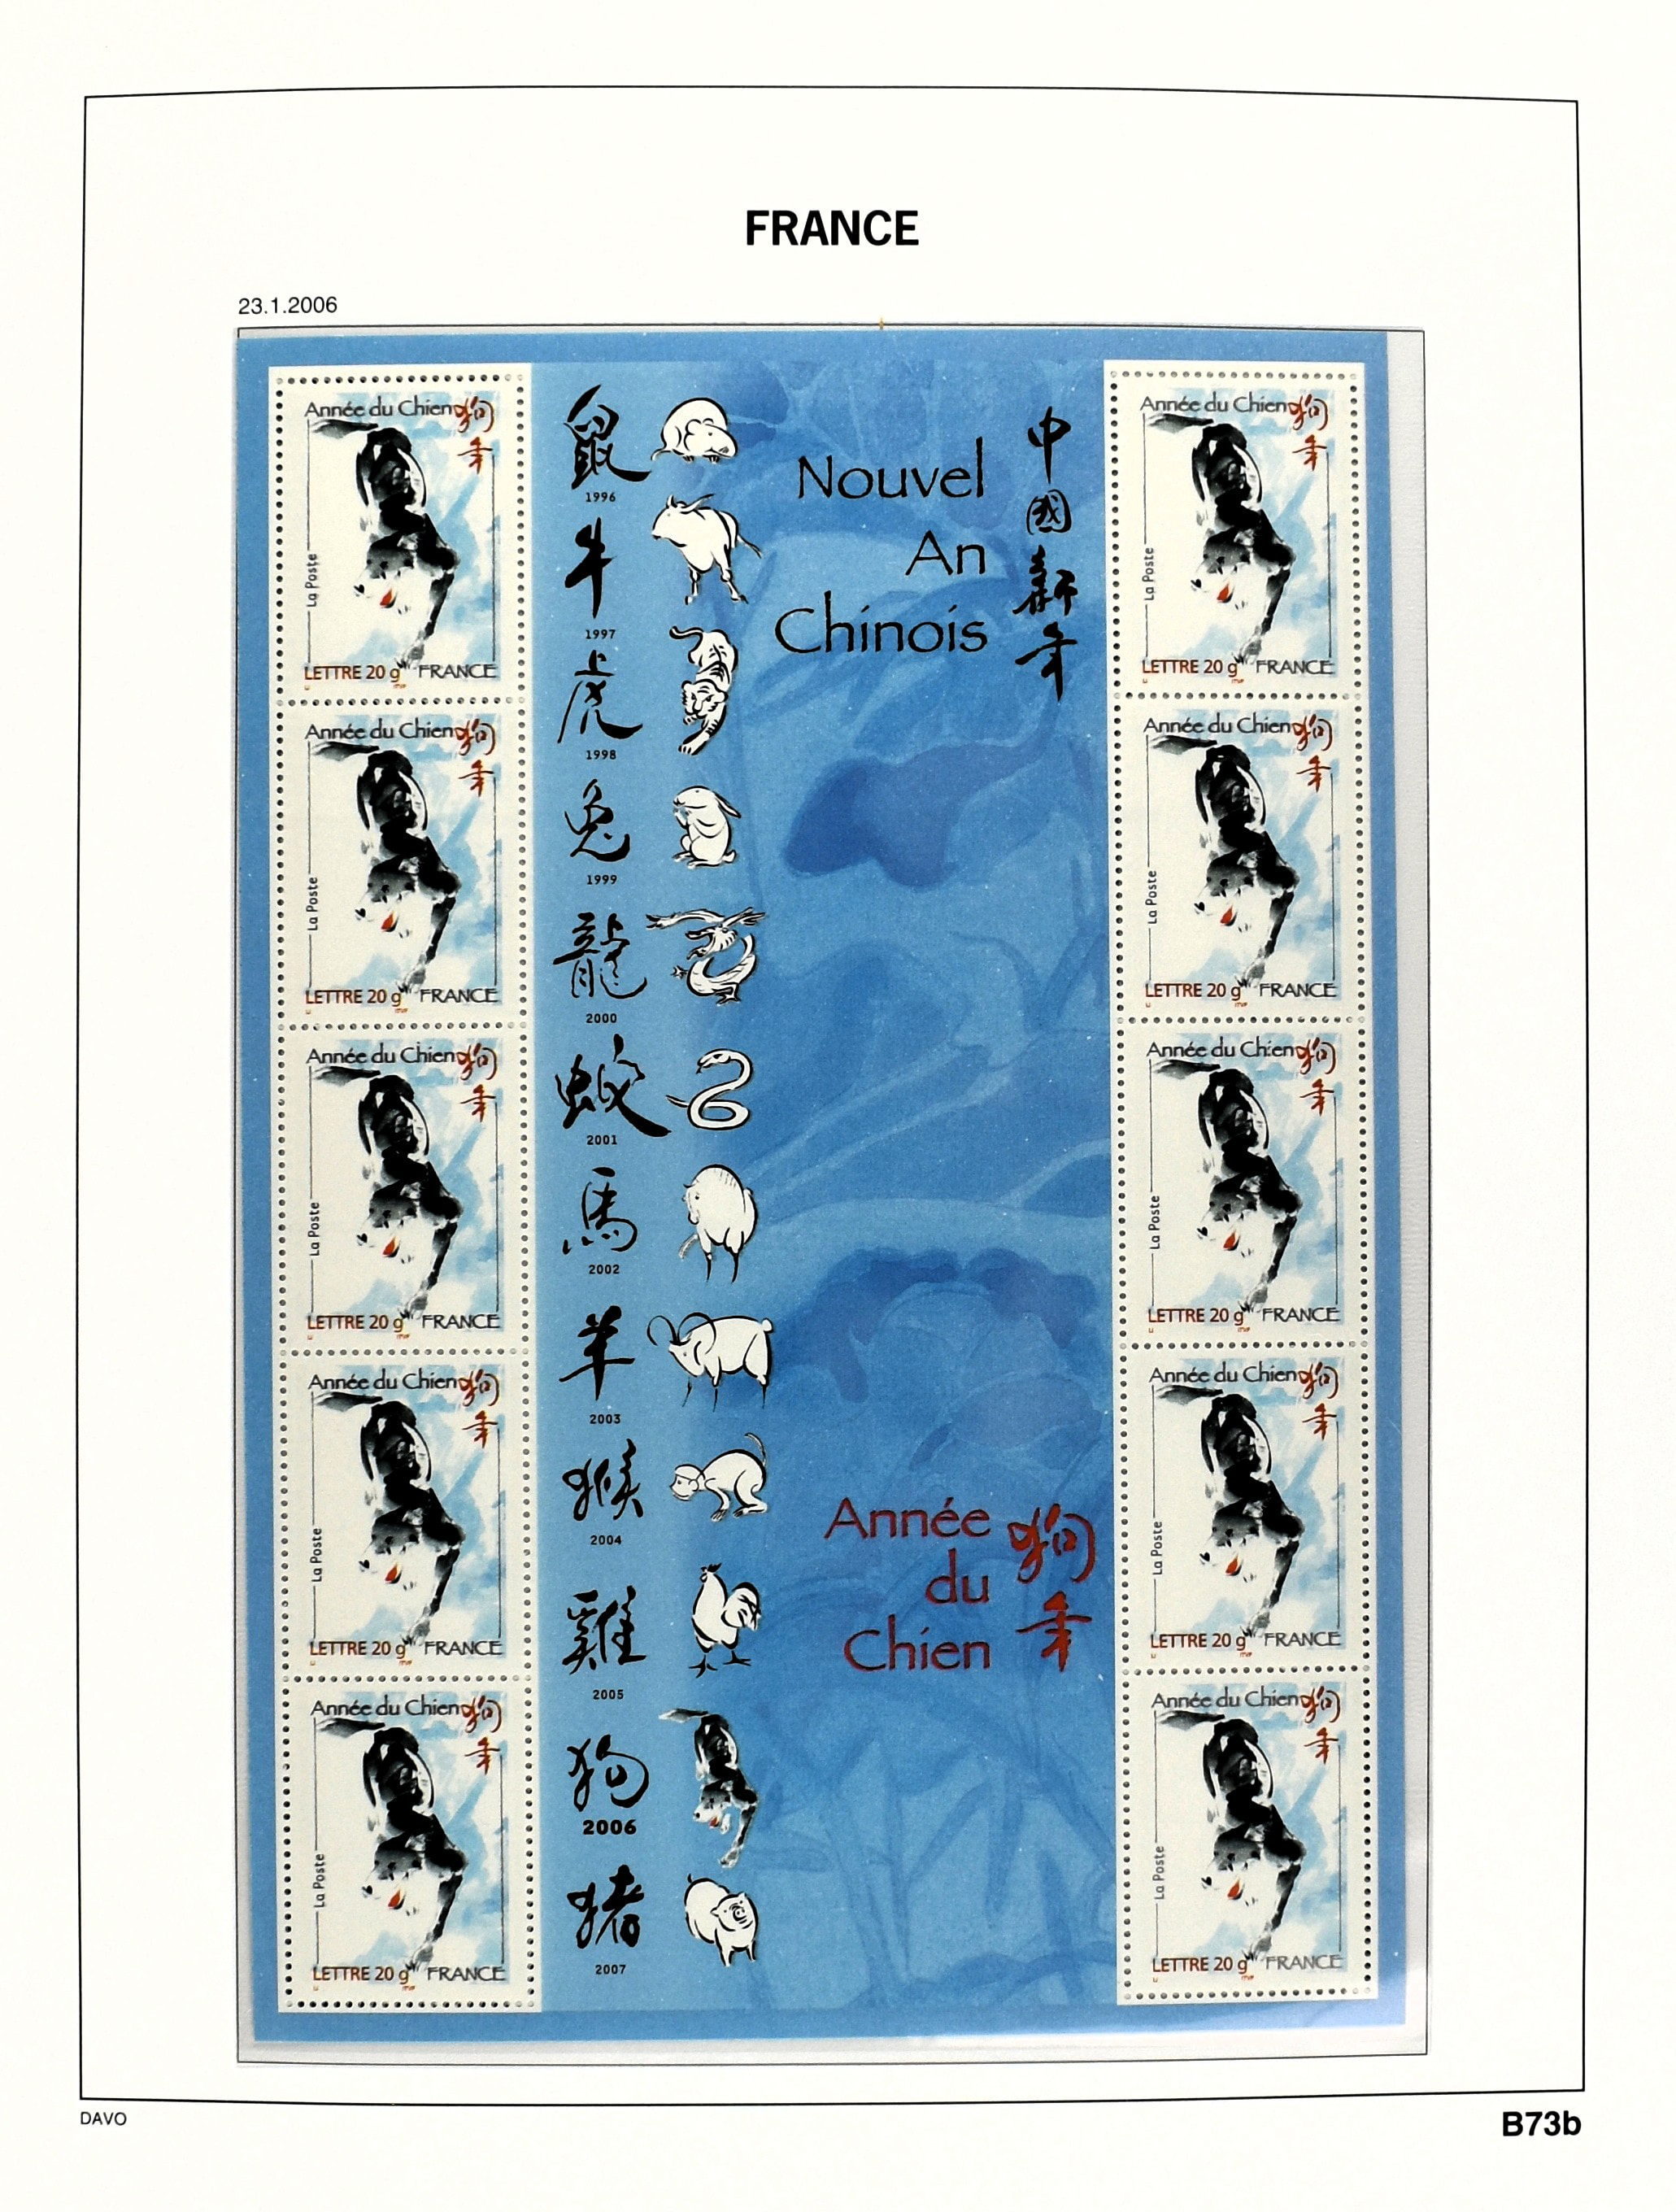 FRANCE
23.1.2006
Année du Chien 狗
年
La Poste
LETTRE 20 g FRANCE
Année du Chien 狗
年
La Poste
LETTRE 20 g FRANCE
Année du Chien 狗
年
La Poste
LETTRE 20 g FRANCE
Année du Chien 狗
年
La Poste
LETTRE 20 g FRANCE
Année du Chien 狗
年
La Poste
LETTRE 20 g FRANCE
鼠
1996
牛
1997
虎
1998
兔
1999
龍
2000
2001
馬
2002
羊
2003
猴
2004
雞
2005
狗
2006
猪
2007
Nouvel
An
Chinois
中國新年
Année
du
Chien
狗年
Année du Chien 狗
年
La Poste
LETTRE 20 g FRANCE
Année du Chien 狗
年
La Poste
LETTRE 20 g FRANCE
Année du Chien 狗
年
La Poste
LETTRE 20 g FRANCE
Année du Chien 狗
年
La Poste
LETTRE 20 g FRANCE
Année du Chien 狗
年
La Poste
LETTRE 20 g FRANCE
DAVO
B73b